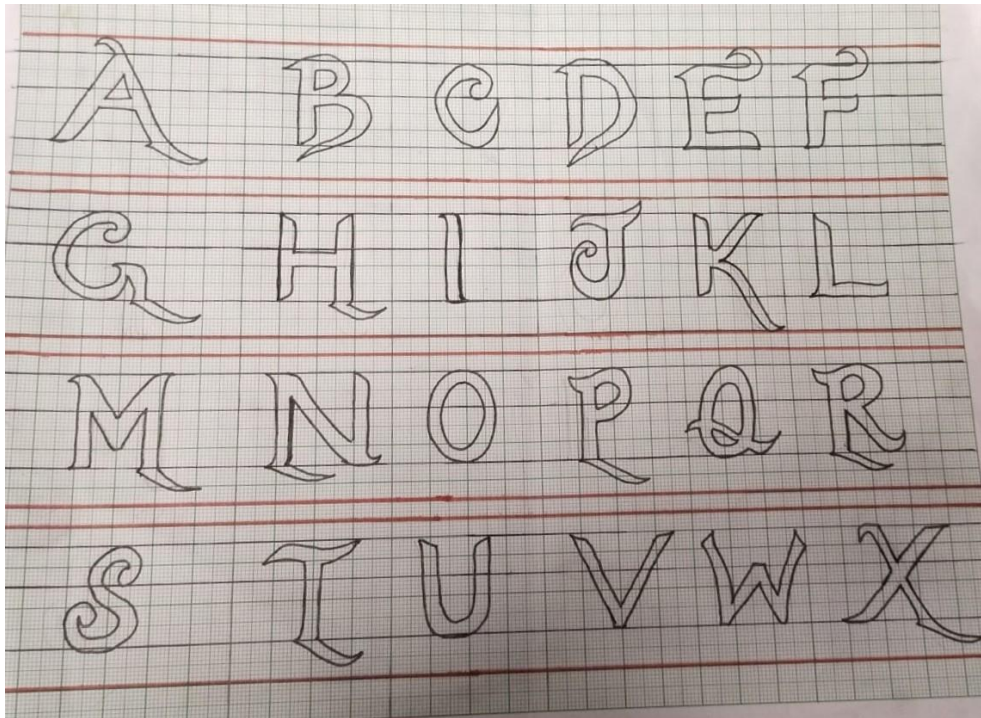 A B C D E F
G H I J K L
M N O P Q R
S T U V W X